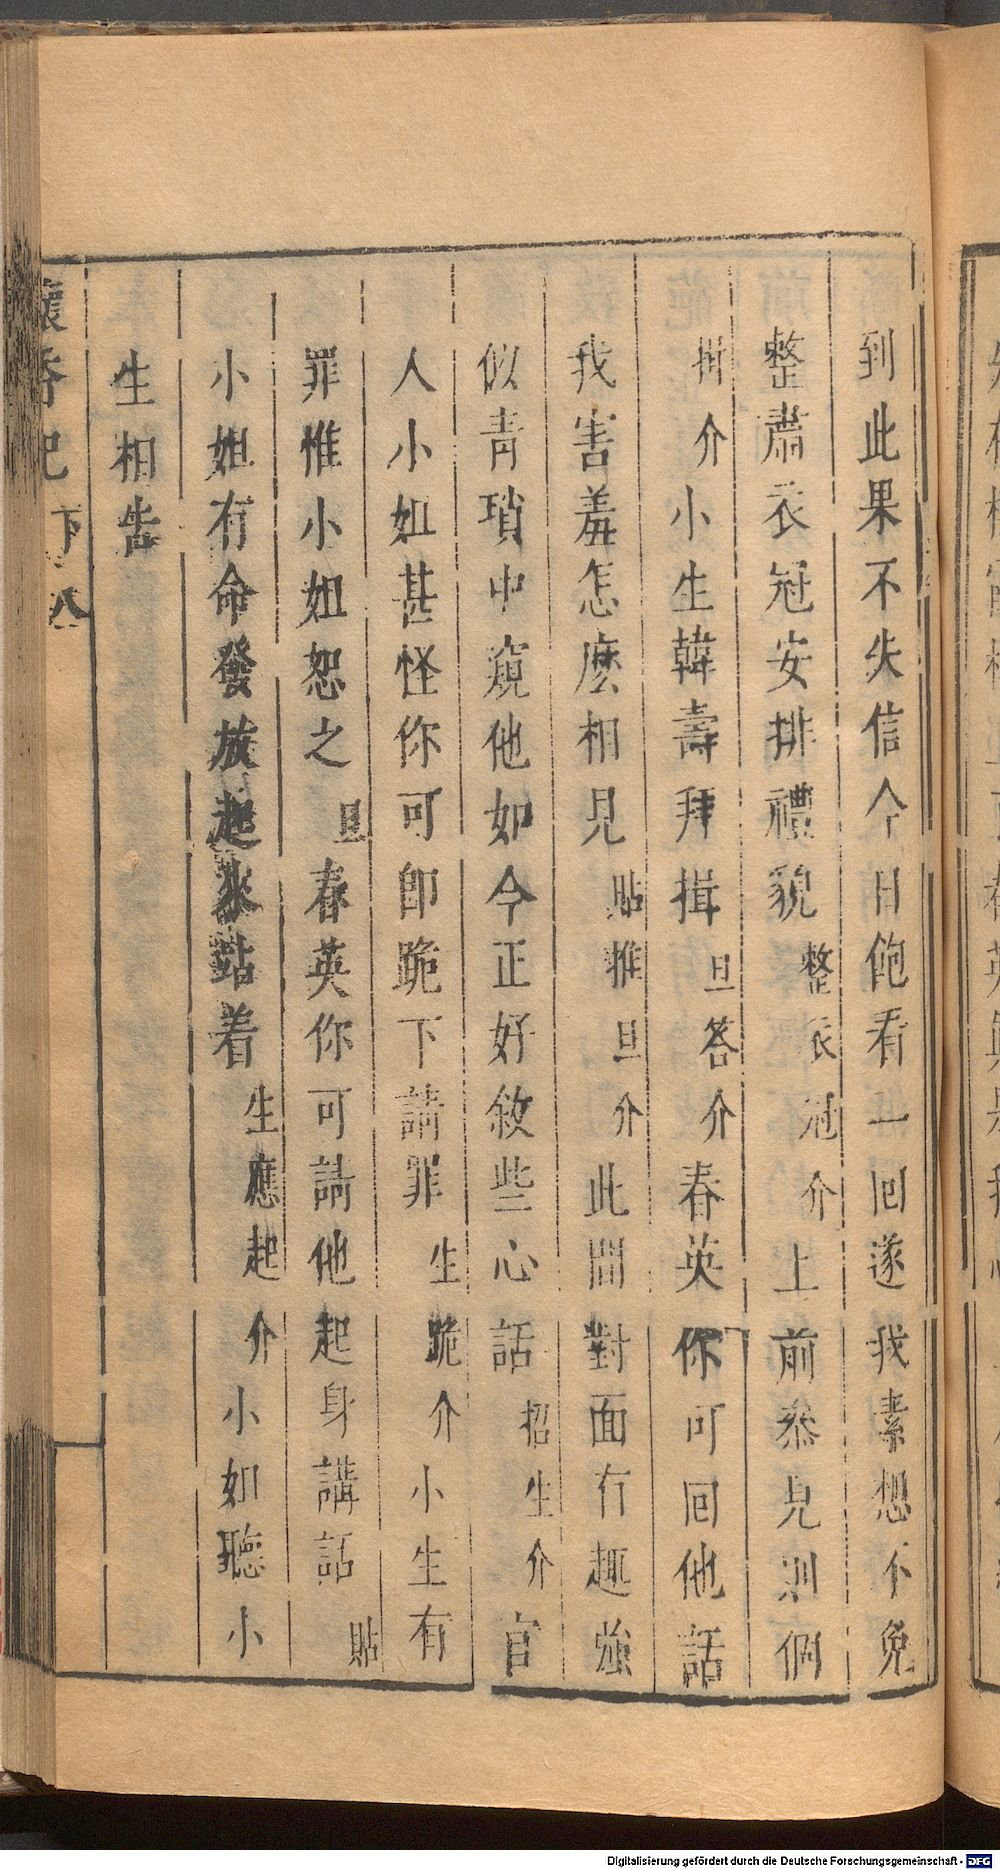 到此果不失信今日飽看一回遂我素想不免
整肅衣冠安排禮貌整衣冠介上前叅見則個
揖介小生韓壽拜揖旦答介春英你可回他話
我害羞怎麽相見貼推旦介此間對面有趣強
似青瑣中窺他如今正好敘些心話招生介官
人小姐甚怪你可即跪下請罪生跪介小生有
罪惟小姐恕之旦春英你可請他起身講話貼
小姐有命發放起來站着生應起介小如聽小
生相告
懷香記 下 八
Digitalisierung gefördert durch die Deutsche Forschungsgemeinschaft - DFG